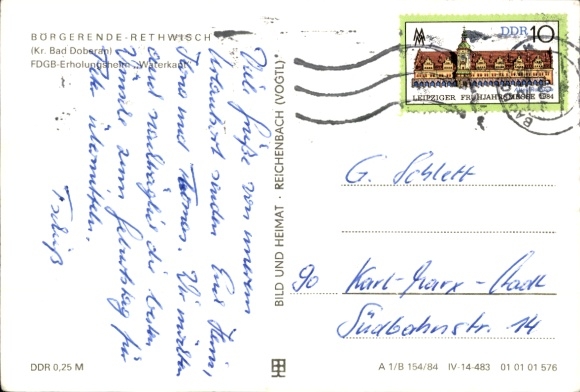 BÖRGERENDE-RETHWISCH
(Kr. Bad Doberan)
FDGB-Erholungsheim „Waterkant"
Viele Grüße von unserem
Urlaubsort senden Euch Heini,
und
und nachträglich die besten
Wünsche zum Geburtstag für
übermitteln.
BILD UND HEIMAT · REICHENBACH (VOGTL)
DDR 10
LEIPZIGER FRÜHJAHRSMESSE 1984
BAD
G. Schlett
90 Karl-Marx-Stadt
Südbahnstr. 14
DDR 0,25 M
A 1/B 154/84 IV-14-483 01 01 01 576